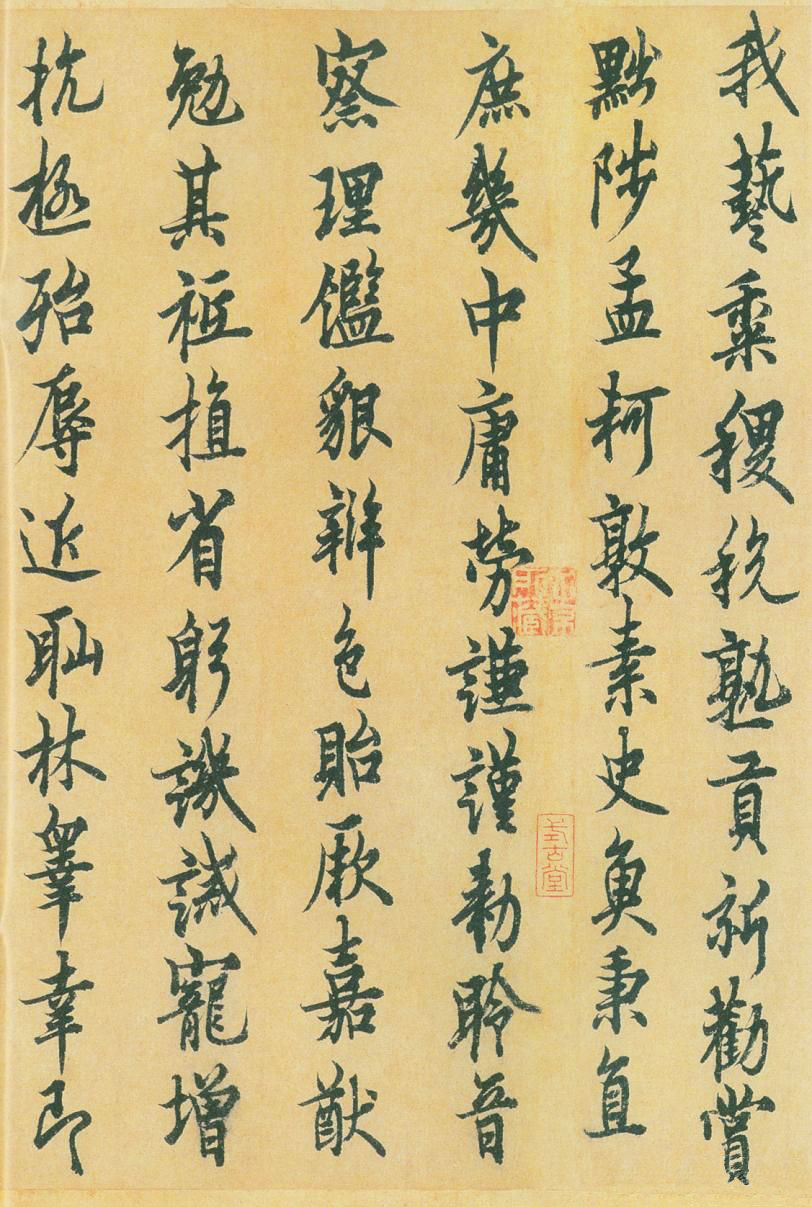 我藝黍稷稅熟貢新勸賞
黜陟孟軻敦素史魚秉直
庶幾中庸勞謙謹勅聆音
察理鑑貌辨色貽厥嘉猷
勉其祗植省躬譏誡寵增
抗極殆辱近恥林睪幸即
式古堂